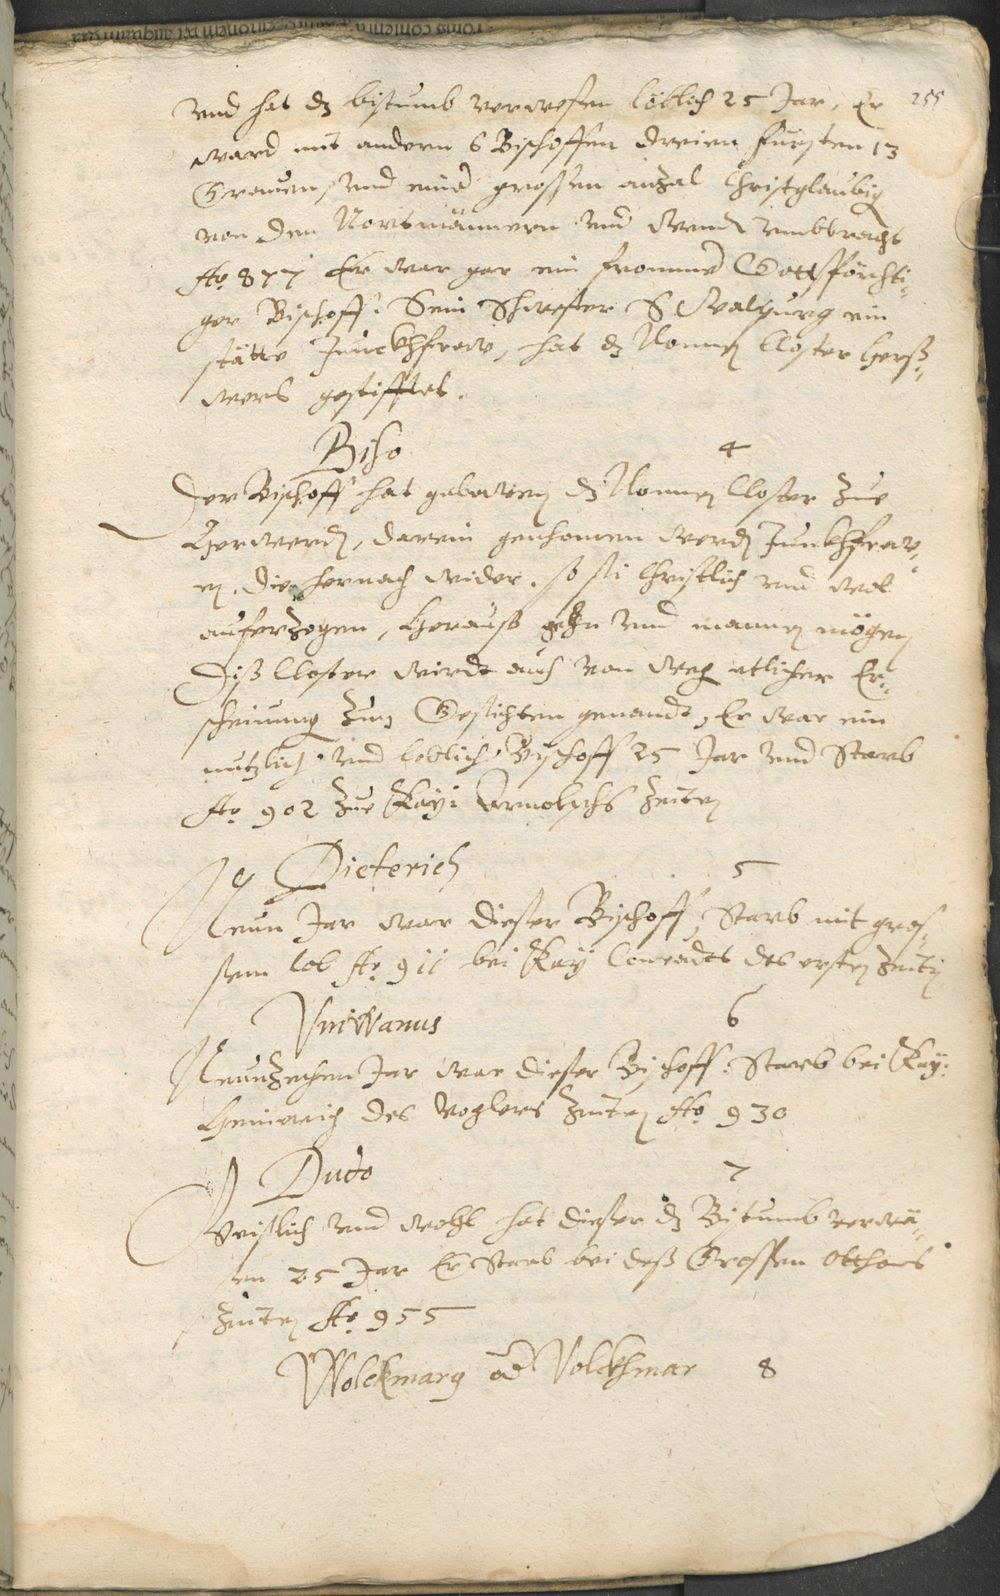 255
vnd hat dz bistumb verwesen löblich 25 Jar. Er
ward mit andern 6 Bischoffen dreien Fürsten 13
Grauen vnd einer grossen anzal Christglaubig
von den Nortmännern vnd Wenden vmbbracht
Ao. 877 Er war gar ein frommer Gottsförchti-
ger Bischoff. Sein Schwester S Walpurg ein
stätte Junckhfraw, hat dz Nonnen Closter Herß-
werb gestifftet.
Biso 4
Der Bischoff hat gebawen dz Nonnen Closter zue
Herwerden, darein genhomen werden Junckhfraw-
en. die hernach wider. so sii Christlich vnd wol
auferzogen, Herauß gehn vnd mannen mögen
Diß Closter wirdt auch von weg etlicher Er-
scheinung zun Gesichten genandt, Er war ein
nutzlich vnd loblich Bischoff 25 Jar vnd Starb
Ao. 902 zue Kay: Arnolphs Zeiten
Dieterich 5
Neun Jar war dieser Bischoff, Starb mit gros-
sem lob Ao. 911 bei Kay Conradts des ersten Zeiten
Vniwanus 6
Neunzechen Jar war dieser Bischoff. Starb bei Kay:
Heinrich des Voglers Zeiten Ao 930
Dudo 7
Christlich vnd wohl hat dieser dz Bistumb verwä-
sen 25 Jar Er Starb bei deß Grossen Otthons
Zeiten Ao. 955
Wolckmarg od Volckhmar 8